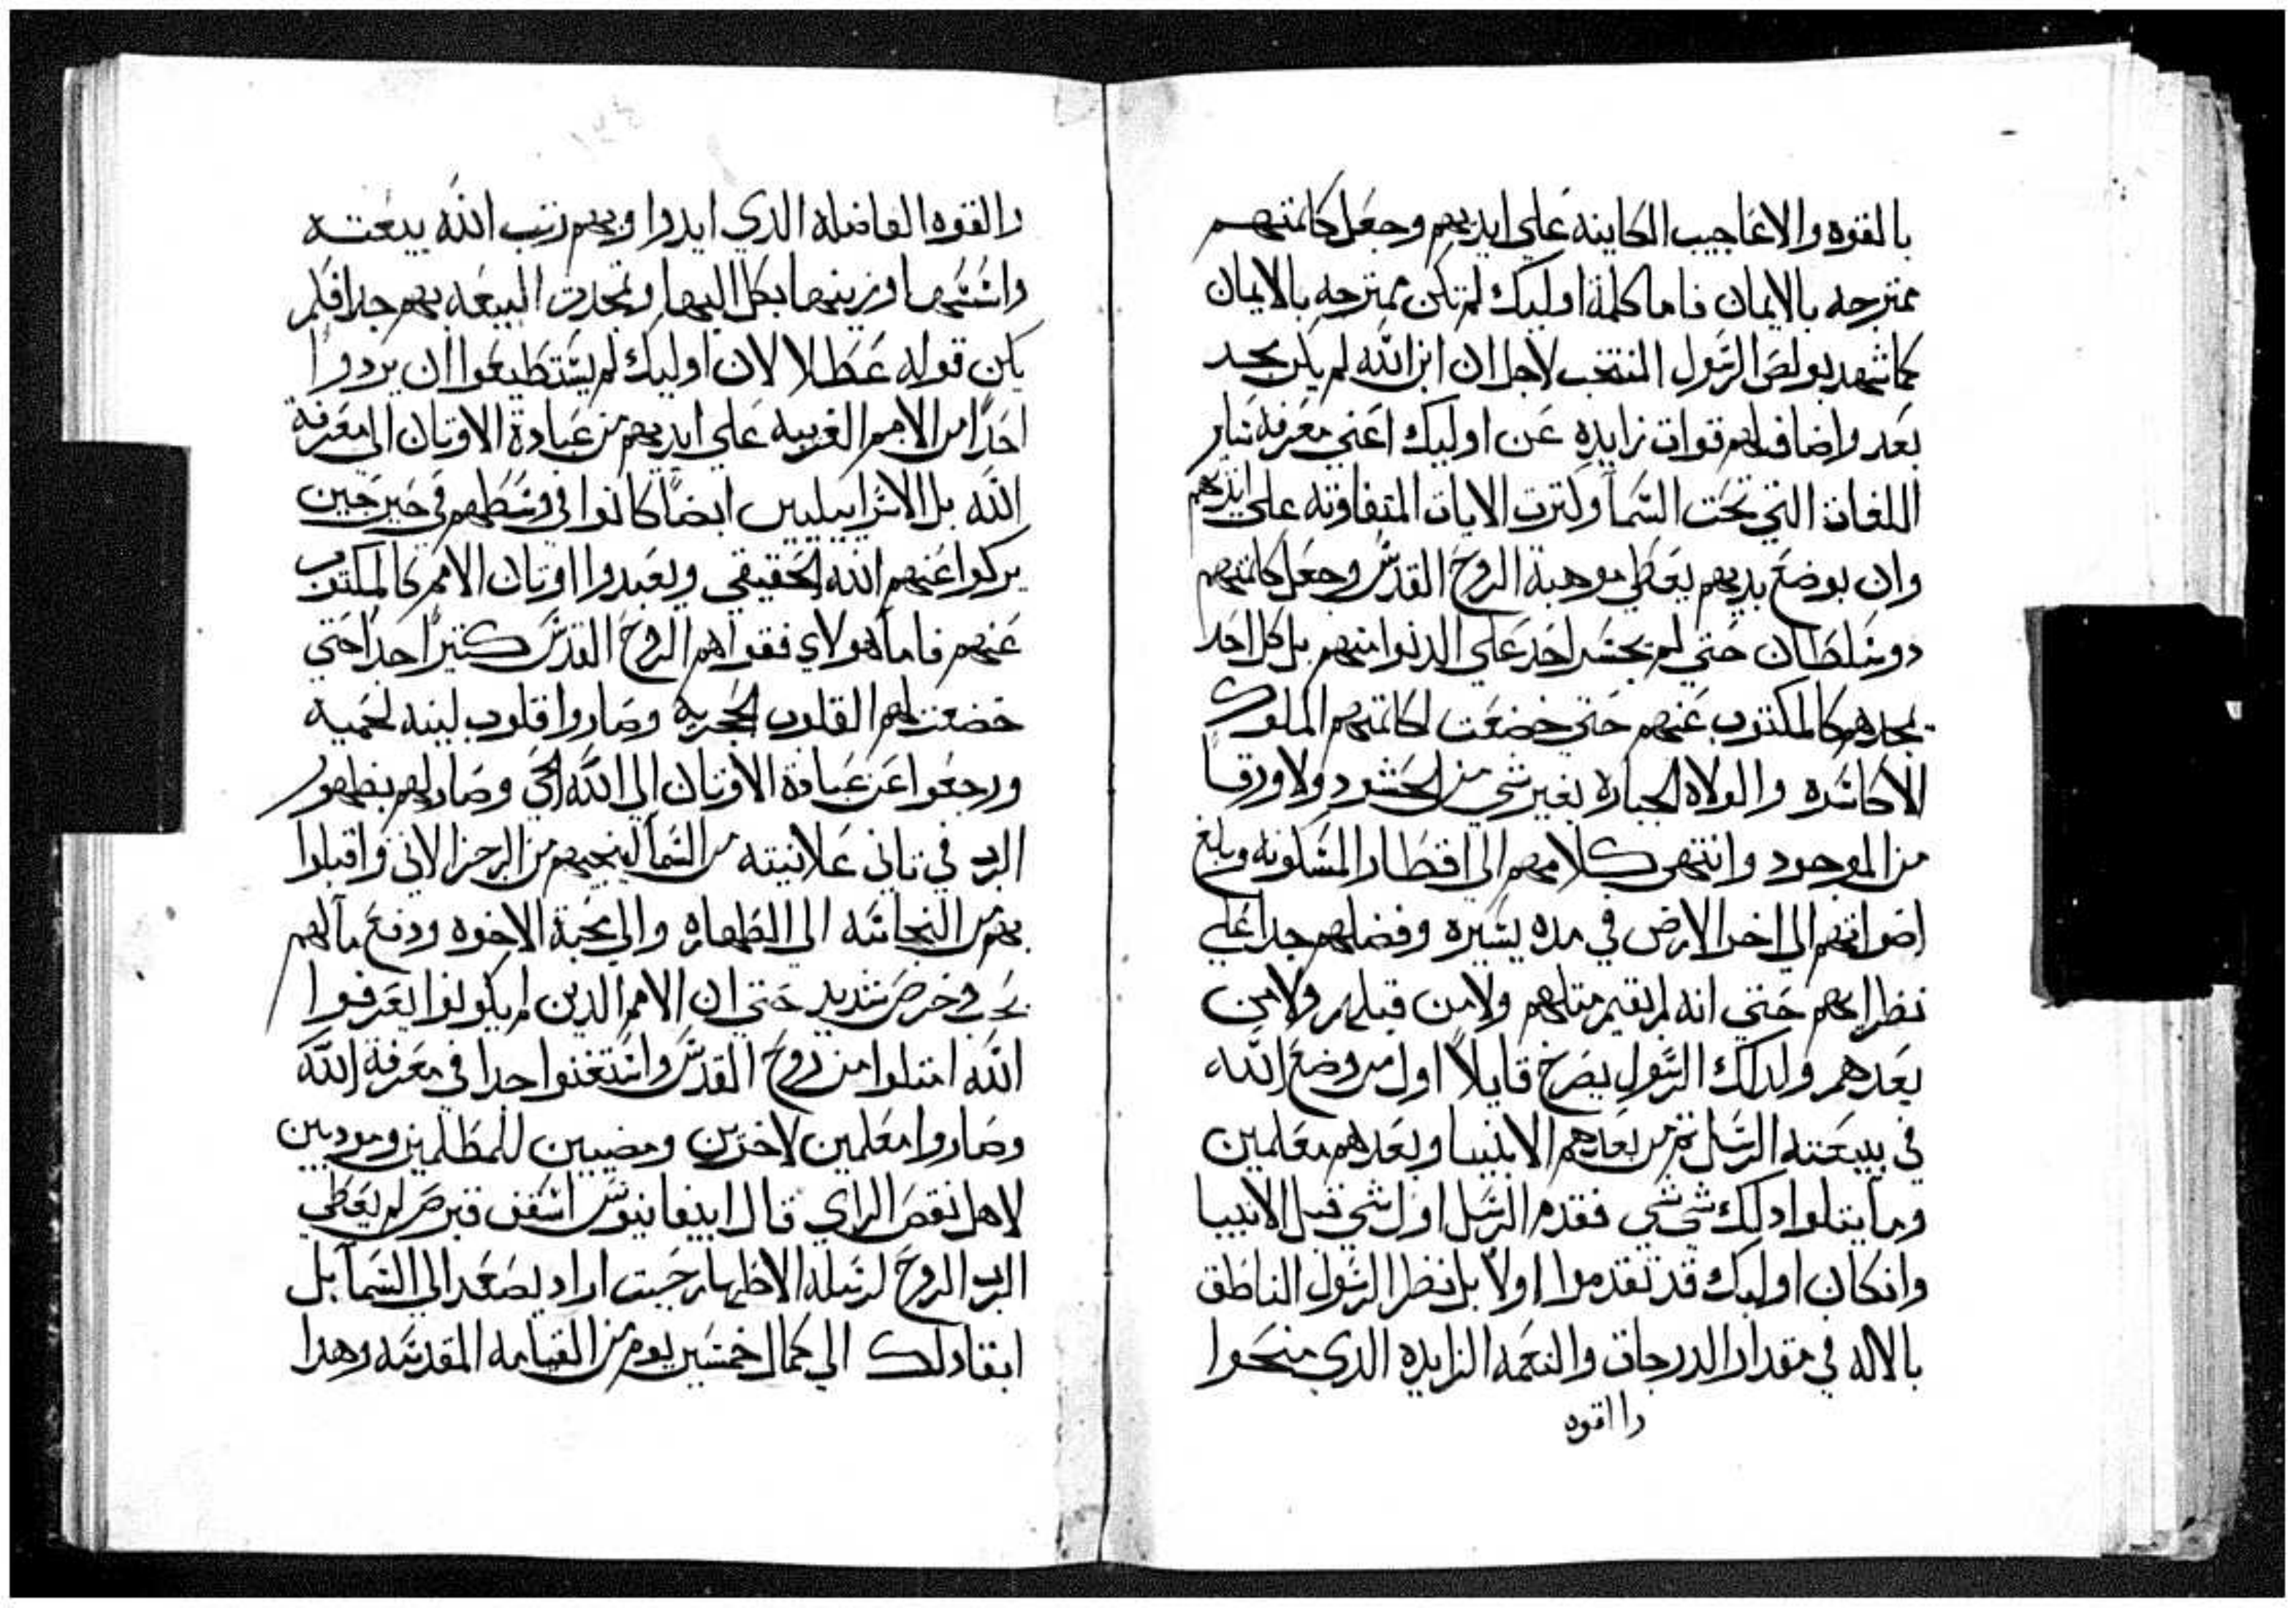 بالقوه والاعاجيب الكاينه علي ايديهم وجعل كلمتهم
ممتزجه بالايمان فاما كلمة اوليك لم تكن ممتزجه بالايمان
كما شهد بولص الرسول المنتخب لاجل ان ابن الله لم يكن تجسد
بعد واضاف لهم قوات زايده عن اوليك اعني معرفة ساير
اللغات التي تحت السما وكترت الايات المتفاوته علي ايديهم
وان بوضع يديهم يعطي موهبة الروح القدس وجعل كلمتهم
دو سلطان حتي لم يجسر احد علي الدنوا منهم بل كل احد
يمجدهم كالمكتوب عنهم حتي خضعت لكلمتهم الملوك
الاكاسره والولاه الجبابره بغير شي من الحشود ولا ورقا
من الموجود وانتهي كلامهم الي اقطار المسكونه وبلغ
اصواتهم الي اخر الارض في مده يسيره وفضلهم جدا علي
نظرايهم حتي انه لم يقيم متلهم ولا من قبلهم ولا من
بعدهم ولدلك الرسول يصرخ قايلا اول من وضع الله
في بيعته الرسل تم من بعدهم الانبيا وبعدهم معلمين
وما يتلوا دلك شي شي فقدم الرسل اول شي قبل الانبيا
وانكان اوليك قد تقدموا اولا بل نظر الرسول الناطق
بالاله في مقدار الدرجات والنعمه الزايده الدي منحوا
والقوه
والقوه الفاضله الدي ايدوا وبهم رتب الله بيعته
واسسها وزينها بكل البها وتمجدت البيعه بهم جدا فلم
يكن قوله عطلا لان اوليك لم يستطيعوا ان يردوا
احدا من الامم الغريبه علي ايديهم من عبادة الاوتان الي معرفة
الله بل الاسراييليين ايضا كانوا في وسطهم في حين حين
يتركوا عنهم الله الحقيقي ويعبدوا اوتان الامم كالمكتوب
عنهم فاما هولاي فقواهم الروح القدس كتيرا جدا حتي
خضعت لهم القلوب الحجريه وصاروا قلوب لينه لحميه
ورجعوا عن عبادة الاوتان الي الله الحي وصار لهم بظهور
الرب في تاني علانيته من السما لينجيهم من الرجز الاتي واقبلوا
بهم من النجاسه الي الطهاره والي محبة الاخوه ودفع مالهم
في حرص شديد حتي ان الامم الدين لم يكونوا يعرفوا
الله امتلوا من روح القدس واستغنوا جدا في معرفة الله
وصاروا معلمين لاخرين ومضيين للمظلمين ومودبين
لاهل نقص الراي قال ابيفانيوس اسقف قبرص لم يعطي
الرب الروح لرسله الاطهار حيت اراد يصعد الي السما بل
ابقا دلك الي كمال خمسين يوم من القيامه المقدسه وهدا